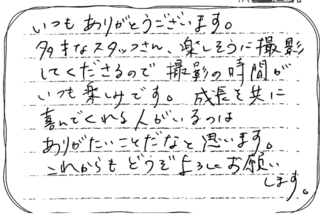 いつもありがとうございます。
好きなスタッフさん、楽しそうに撮影
してくださるので撮影の時間が
いつも楽しみです。成長を共に
喜んでくれる人がいるのは
ありがたいことだなと思います。
これからもどうぞよろしくお願い
します。